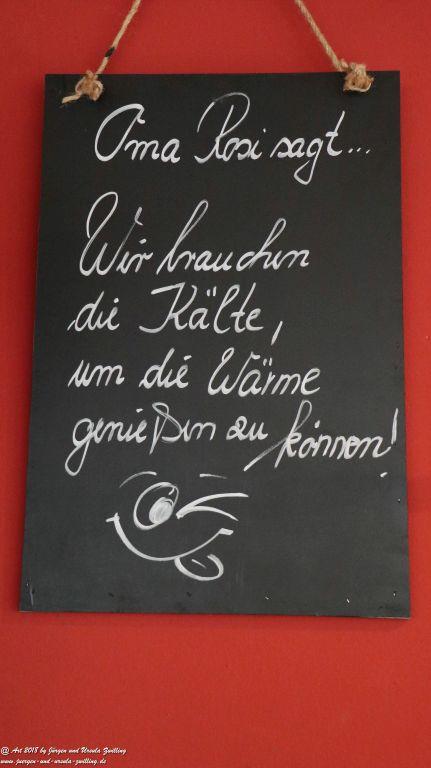 Oma Rosi sagt...
Wir brauchen
die Kälte,
um die Wärme
genießen zu können!
@ Art 2018 by Jürgen und Ursula Zwilling
www.juergen-und-ursula-zwilling.de